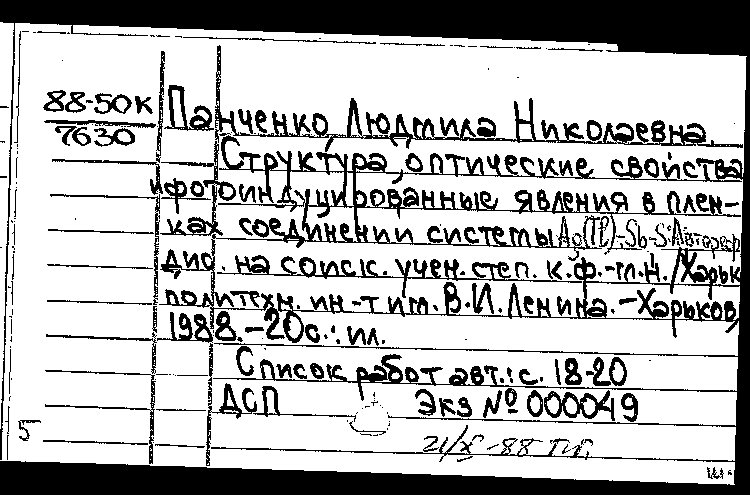 88-50К
7630
Панченко, Людмила Николаевна.
Структура, оптические свойства
и фотоиндуцированные явления в плен-
ках соединении системы Ag(Tl)-Sb-S: Автореф.
дис. на соиск. учен. степ. к.ф.-м.н. / Харьк
политехн. ин-т им. В.И.Ленина. – Харьков,
1988. – 20с. : ил.
Список работ авт.: с. 18-20
ДСП Экз № 000049
5
21/X-88